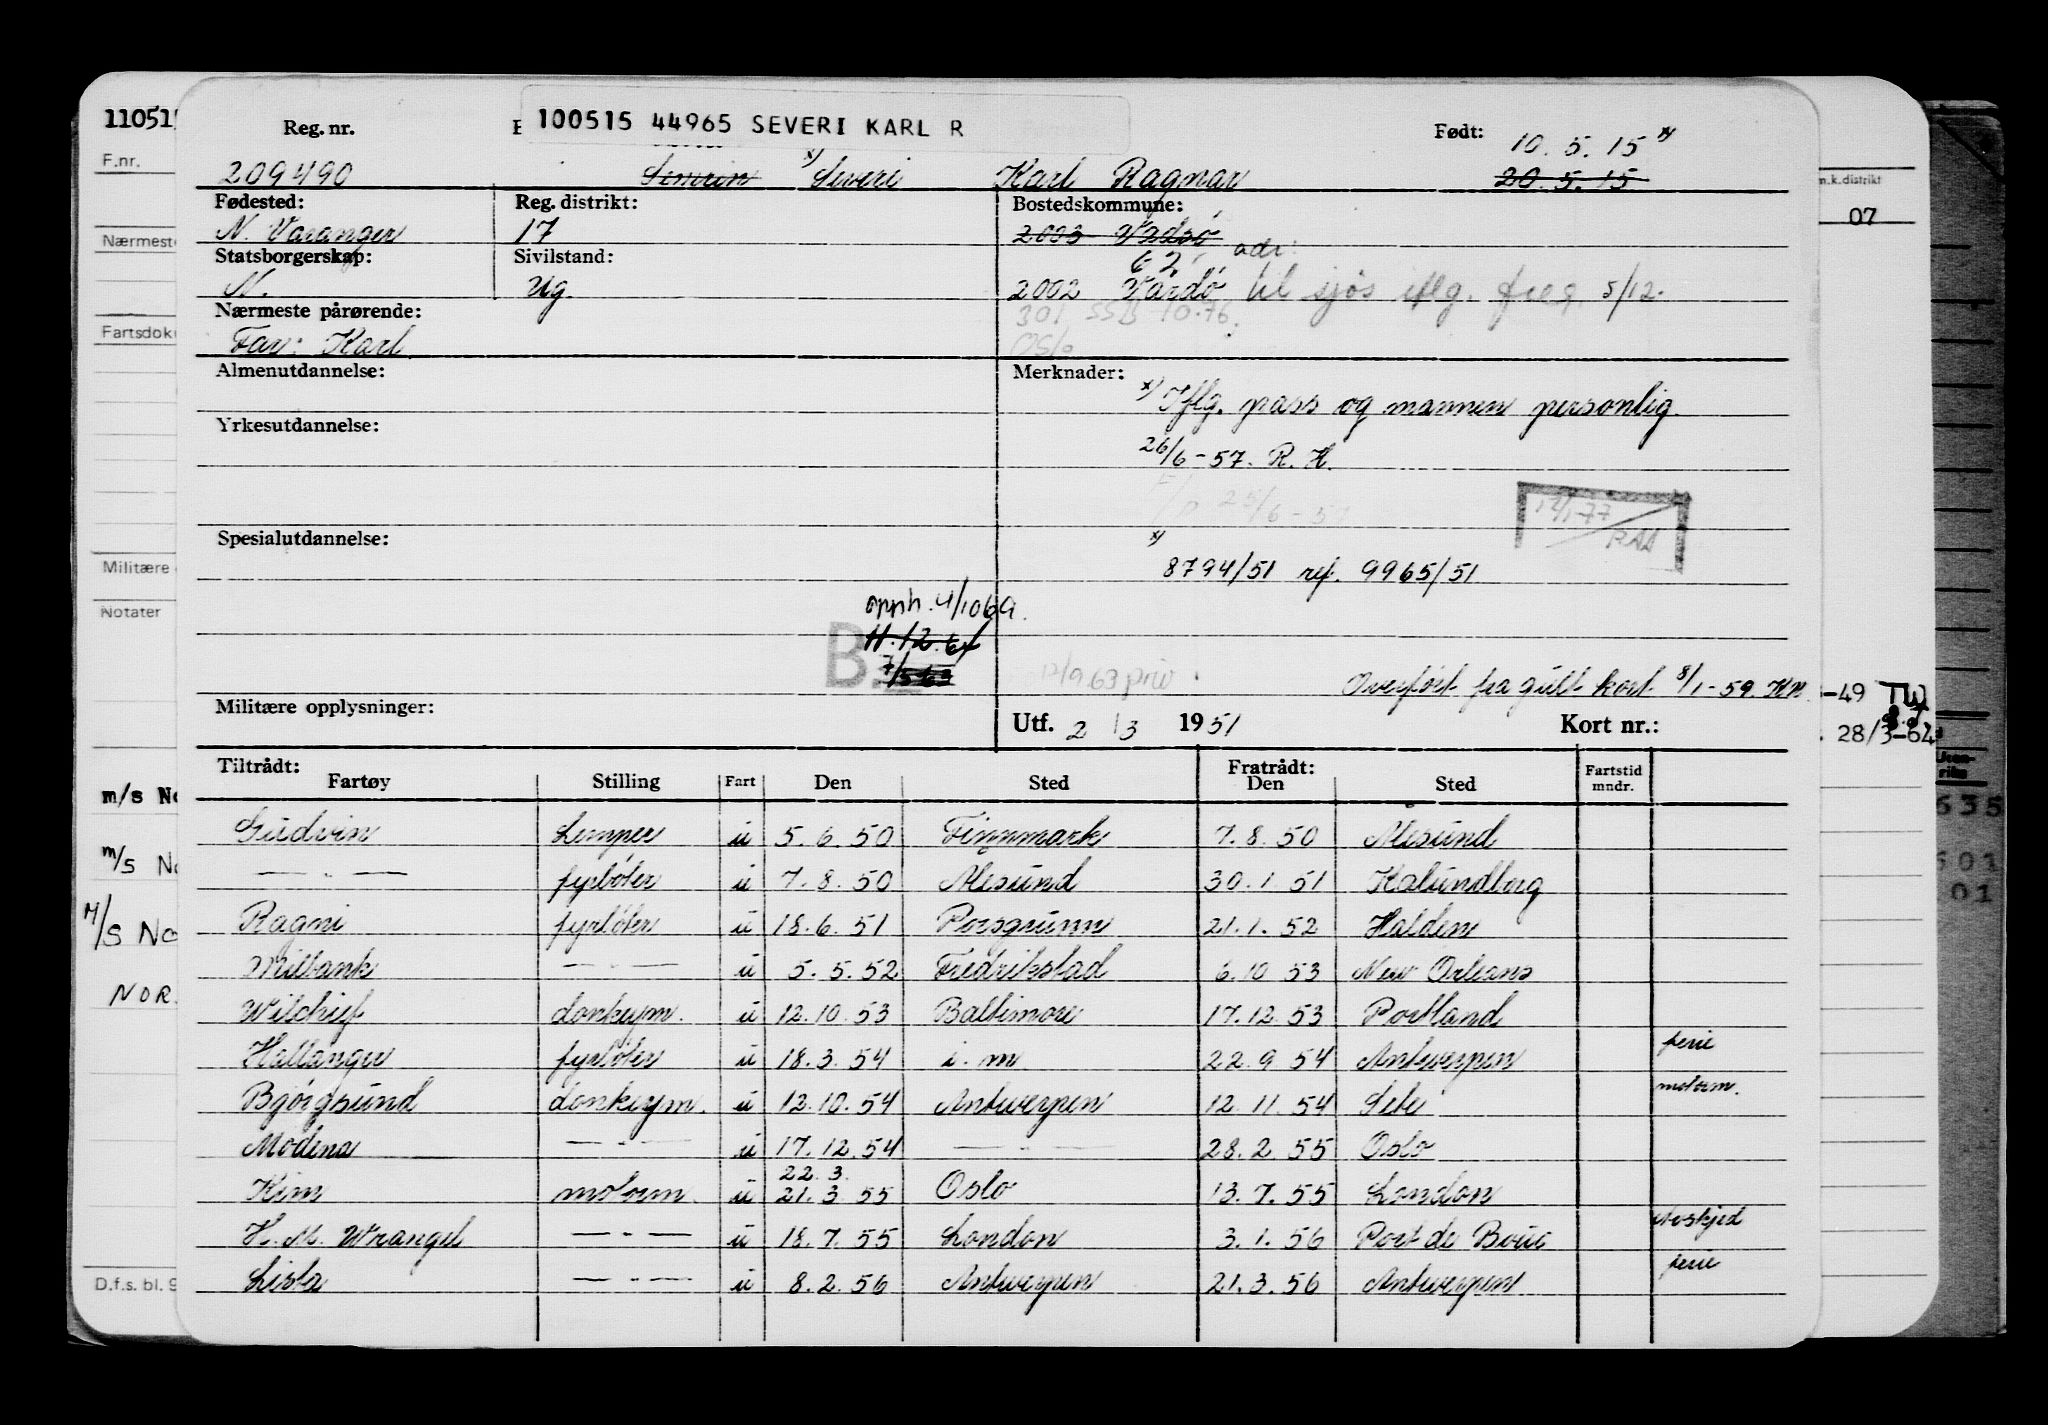 110515
100515 44965 SEVERI KARL R
Reg. nr.
Født: 10.5.15 x)
F.nr.
209490 x) Severi Karl Ragnar 20.5.15
m.k.distrikt
07
Fødested: Reg. distrikt: Bostedskommune:
N. Varanger 17 2003 Vadsø
Nærmeste
Statsborgerskap: Sivilstand: 62. adr:
N. Ug. 2002 Vardø til sjøs iflg. freg. 5/12.
Nærmeste pårørende: 301 SSB 10.76
Far: Karl Oslo
Fartsdoku
Almenutdannelse: Merknader:
x) Iflg. pass og mannen personlig
Yrkesutdannelse:
26/6-57. R. H.
12/1-77
RAA
Spesialutdannelse:
x) 8794/51 ref. 9965/51
Militære
Notater
opph. 4/10 69.
11.12.64
7/5 63
B.
12/9.63 priv
Overført fra gult kort 8/1-59. KN.
-49 TW
Militære opplysninger:
Utf. 2/3 1951 Kort nr.:
28/3-64
Tiltrådt: Fratrådt:
Fartøy Stilling Fart Den Sted Den Sted Fartstid mndr.
m/s No
Gudvin Lemper u 5.6.50 Finnmark 7.8.50 Ålesund
635
m/s No
— " — fyrbøter u 7.8.50 Ålesund 30.1.51 Kalundborg
601
01
M/S No
Ragni fyrbøter u 18.6.51 Porsgrunn 21.1.52 Halden
Milbank — " — u 5.5.52 Fredrikstad 6.10.53 New Orleans
NOR.
Wilchief donkeym. u 12.10.53 Baltimore 17.12.53 Portland
Hallanger fyrbøter u 18.3.54 i.m 22.9.54 Antwerpen ferie
Bjørgsund donkeym. u 12.10.54 Antwerpen 12.11.54 Sete motorm.
Modena — " — u 17.12.54 — " — 28.2.55 Oslo
22.3.
Kim motorm. u 21.3.55 Oslo 13.7.55 London
H. M. Wrangell — " — u 18.7.55 London 3.1.56 Port de Bouc Avskjed
Lista — " — u 8.2.56 Antwerpen 21.3.56 Antwerpen ferie
D.f.s. bl. 9